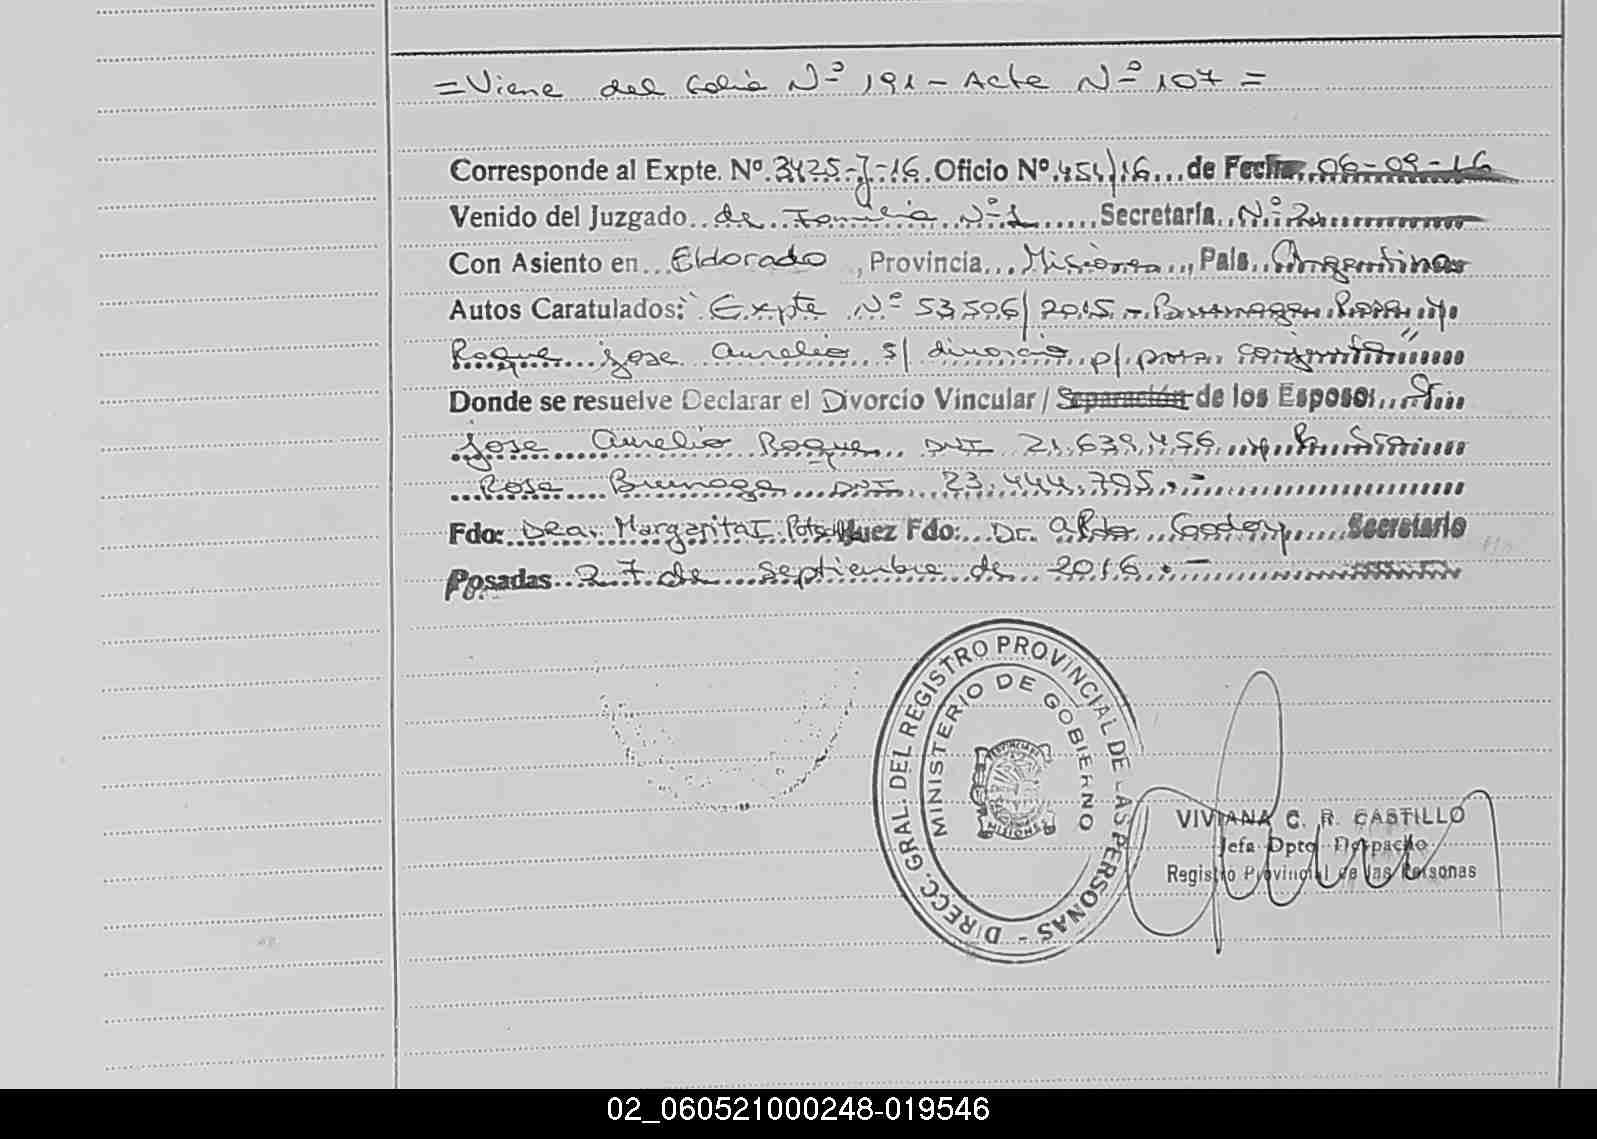 = Viene del folio Nº 191 - Acta Nº 107 =
Corresponde al Expte. Nº 3425-J-16 Oficio Nº 454/16 de Fecha 06-09-16
Venido del Juzgado de Familia Nº 1 Secretaría Nº 2
Con Asiento en Eldorado, Provincia Misiones, País Argentina
Autos Caratulados: Expte Nº 53506/2015 - Brumaga Rosa y
Roque Jose Aurelio s/ divorcio p/ pres. conjunta"
Donde se resuelve Declarar el Divorcio Vincular / Separación de los Esposos Sr.
Jose Aurelio Roque DNI 21.639.456 y la Sra
Rosa Brumaga DNI 23.444.705.-
Fdo: Dra. Margarita I. Juez Fdo: Dr. Aldo Godoy Secretario
Posadas 27 de Septiembre de 2016.-
DIRECC. GRAL. DEL REGISTRO PROVINCIAL DE LAS PERSONAS -
MINISTERIO DE GOBIERNO
MISIONES
VIVIANA C. R. CASTILLO
Jefa Dpto Despacho
Registro Provincial de las Personas
02_060521000248-019546